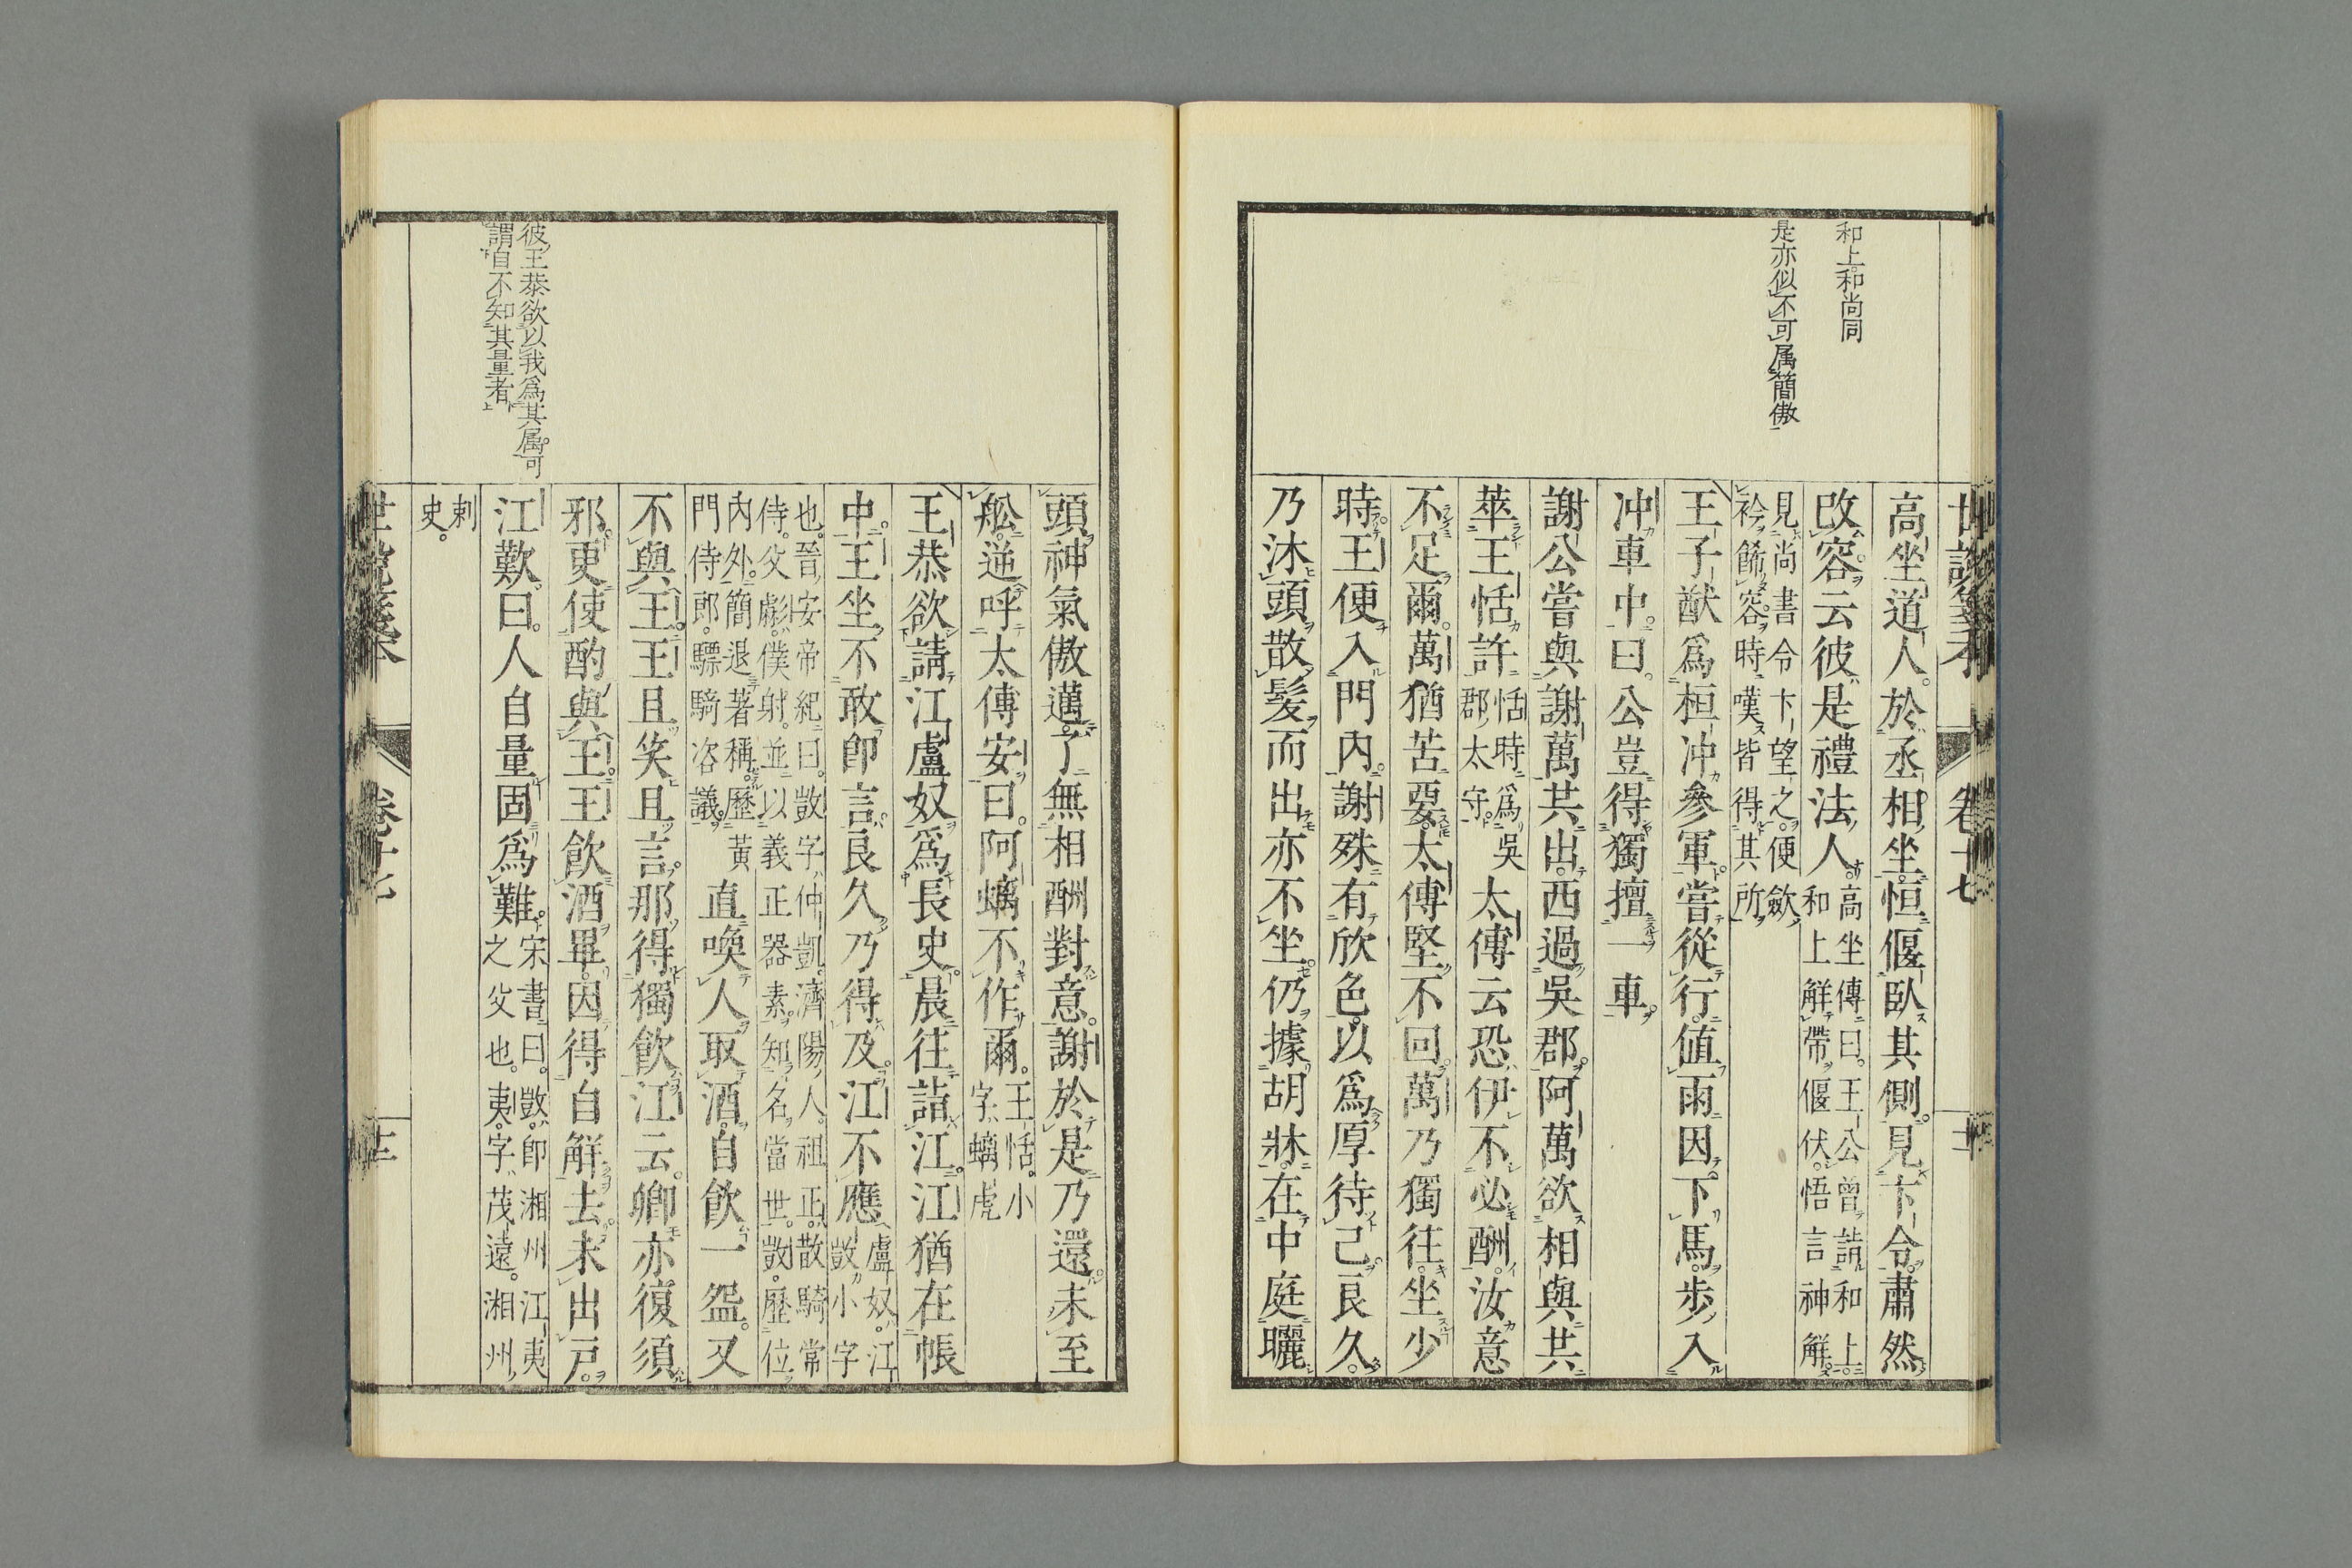 和上和尚同
是亦似不可属簡傲
高坐道人於丞相坐恒偃臥其側見卞令肅然
改容云彼是禮法人高坐傳曰王公曾詣和上
和上解帶偃伏悟言神解
見尚書令卞望之便斂
衿飾容時嘆皆得其所
王子猷為桓冲參軍嘗從行値雨因下馬步入
冲車中曰公豈得獨擅一車
謝公嘗與謝萬共出西過吳郡阿萬欲相與共
萃王恬許恬時為吳
郡太守太傅云恐伊不必酬汝意
不足爾萬猶苦要太傅堅不回萬乃獨往坐少
時王便入門內謝殊有欣色以爲厚待己良久
乃沐頭散髮而出亦不坐仍據胡牀在中庭曬
彼王恭欲以我爲其属可
謂自不知其量者
頭神氣傲邁了無相酬對意謝於是乃還未至
舩逆呼太傅安曰阿螭不作爾王恬小
字螭虎
王恭欲請江盧奴爲長史晨往詣江江猶在帳
中王坐不敢卽言良久乃得及江不應盧奴江
敳小字
也晉安帝紀曰敳字仲凱濟陽人祖正散騎常
侍父彪僕射並以義正器素知名當世敳歷位
內外簡退著稱歷黃
門侍郎驃騎咨議直喚人取酒自飮一盌又
不與王王且笑且言那得獨飮江云卿亦復須
邪更使酌與王王飮酒畢因得自解去未出戸
江歎曰人自量固爲難宋書曰敳卽湘州江夷
之父也夷字茂遠湘州
刺
史
卷十七